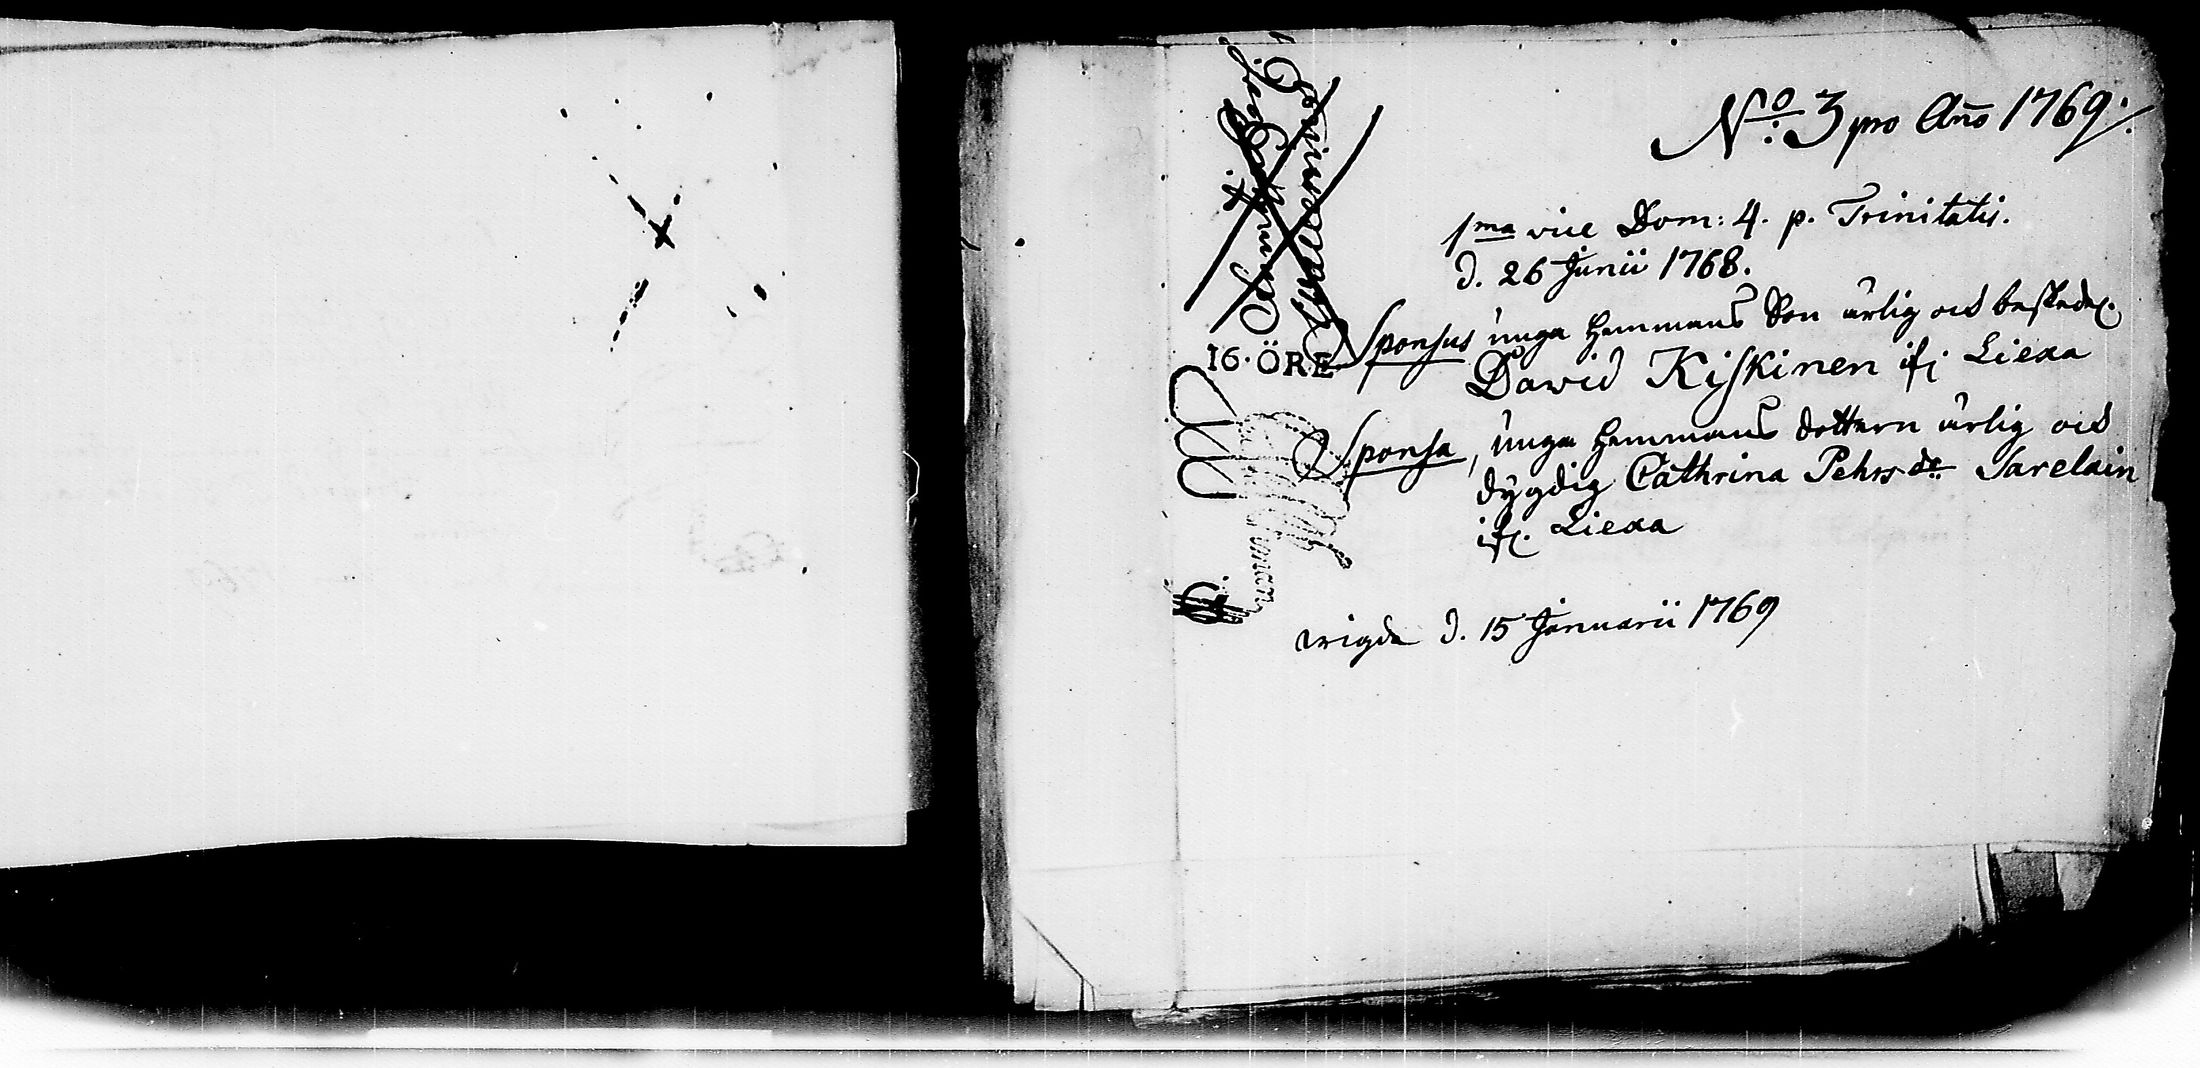 No: 3 pro Año 1769.
1ma vice Dom: 4. p. Trinitatis.
d. 26 Junii 1768.
Sponsus unga Hemmans Son ärlig och beskedel.
David Kiskinen ifr. Liexa
16. ÖRE
Sponsa, unga Hemmans dottern ärlig och
dygdig Cathrina Pehrs dr. Sarelain
ifr. Liexa
wigde d. 15 Januarii 1769